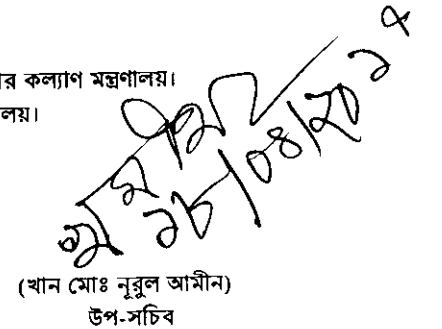 র কল্যাণ মন্ত্রণালয়।
লয়।
১৮/০৪/২০১৫
(খান মোঃ নূরুল আমীন)
উপ-সচিব